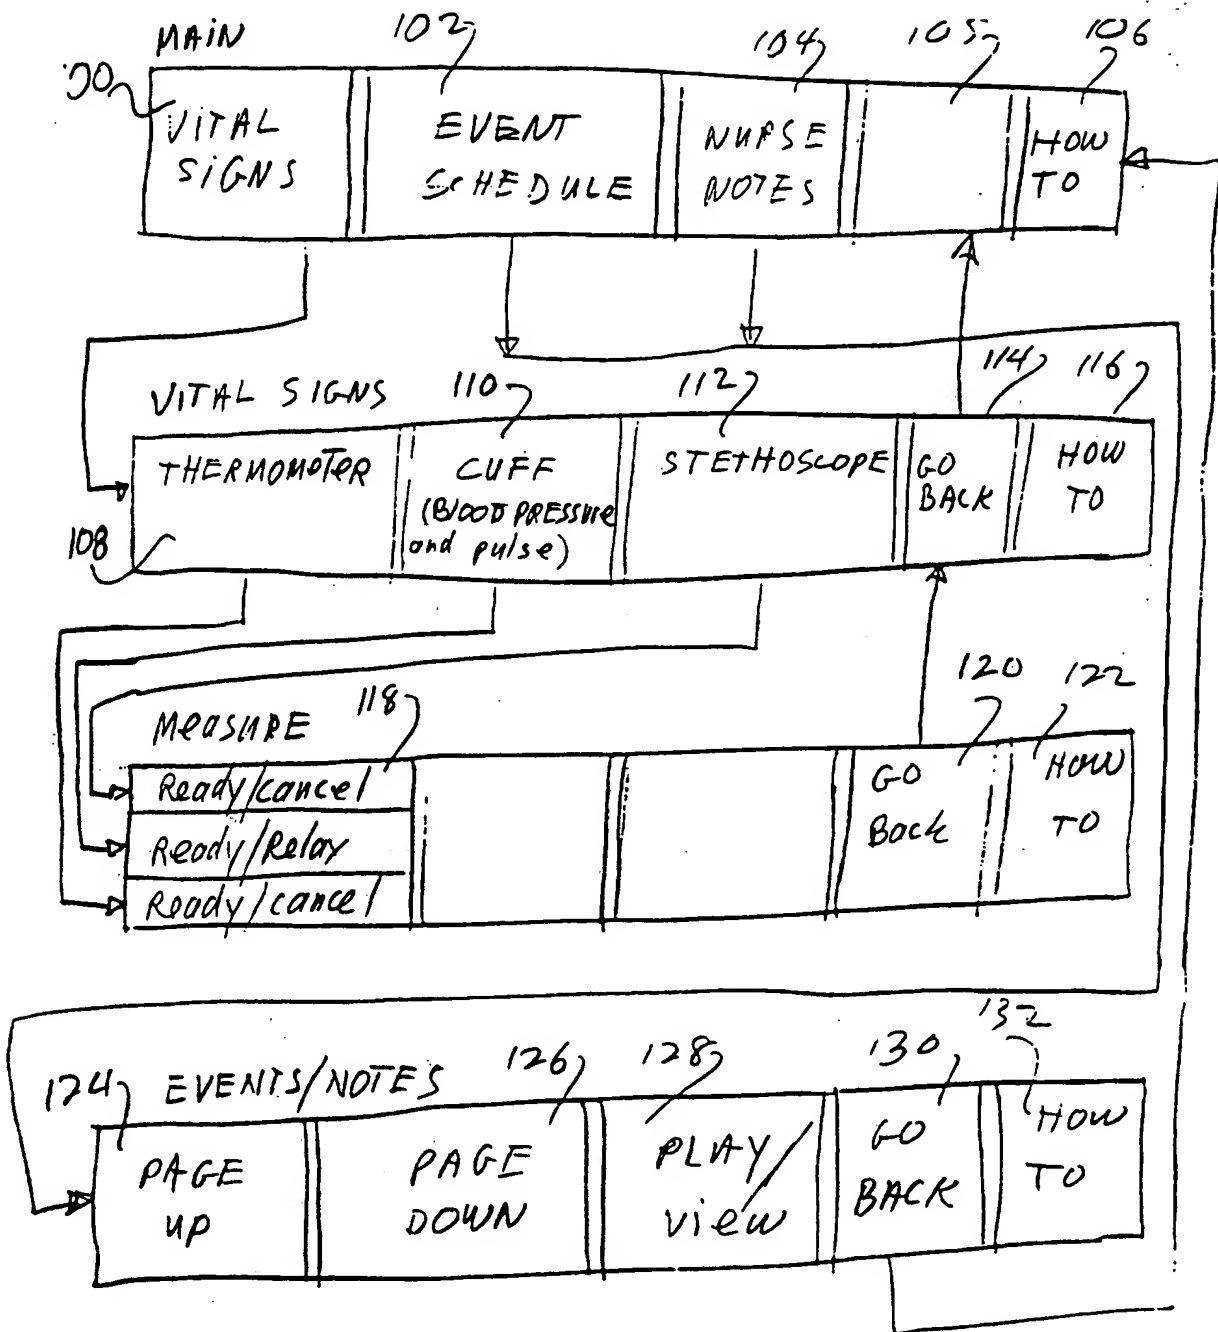 MAIN
102
104
105
106
00
VITAL
SIGNS
EVENT
SCHEDULE
NURSE
NOTES
HOW
TO
VITAL SIGNS
110
112
114
116
THERMOMETER
CUFF
(BLOOD PRESSURE
and pulse)
STETHOSCOPE
GO
BACK
HOW
TO
108
MEASURE
118
120
122
Ready/cancel
Ready/Relax
Ready/cancel
GO
Back
HOW
TO
124
EVENTS/NOTES
126
128
130
132
PAGE
UP
PAGE
DOWN
PLAY/
view
GO
BACK
HOW
TO